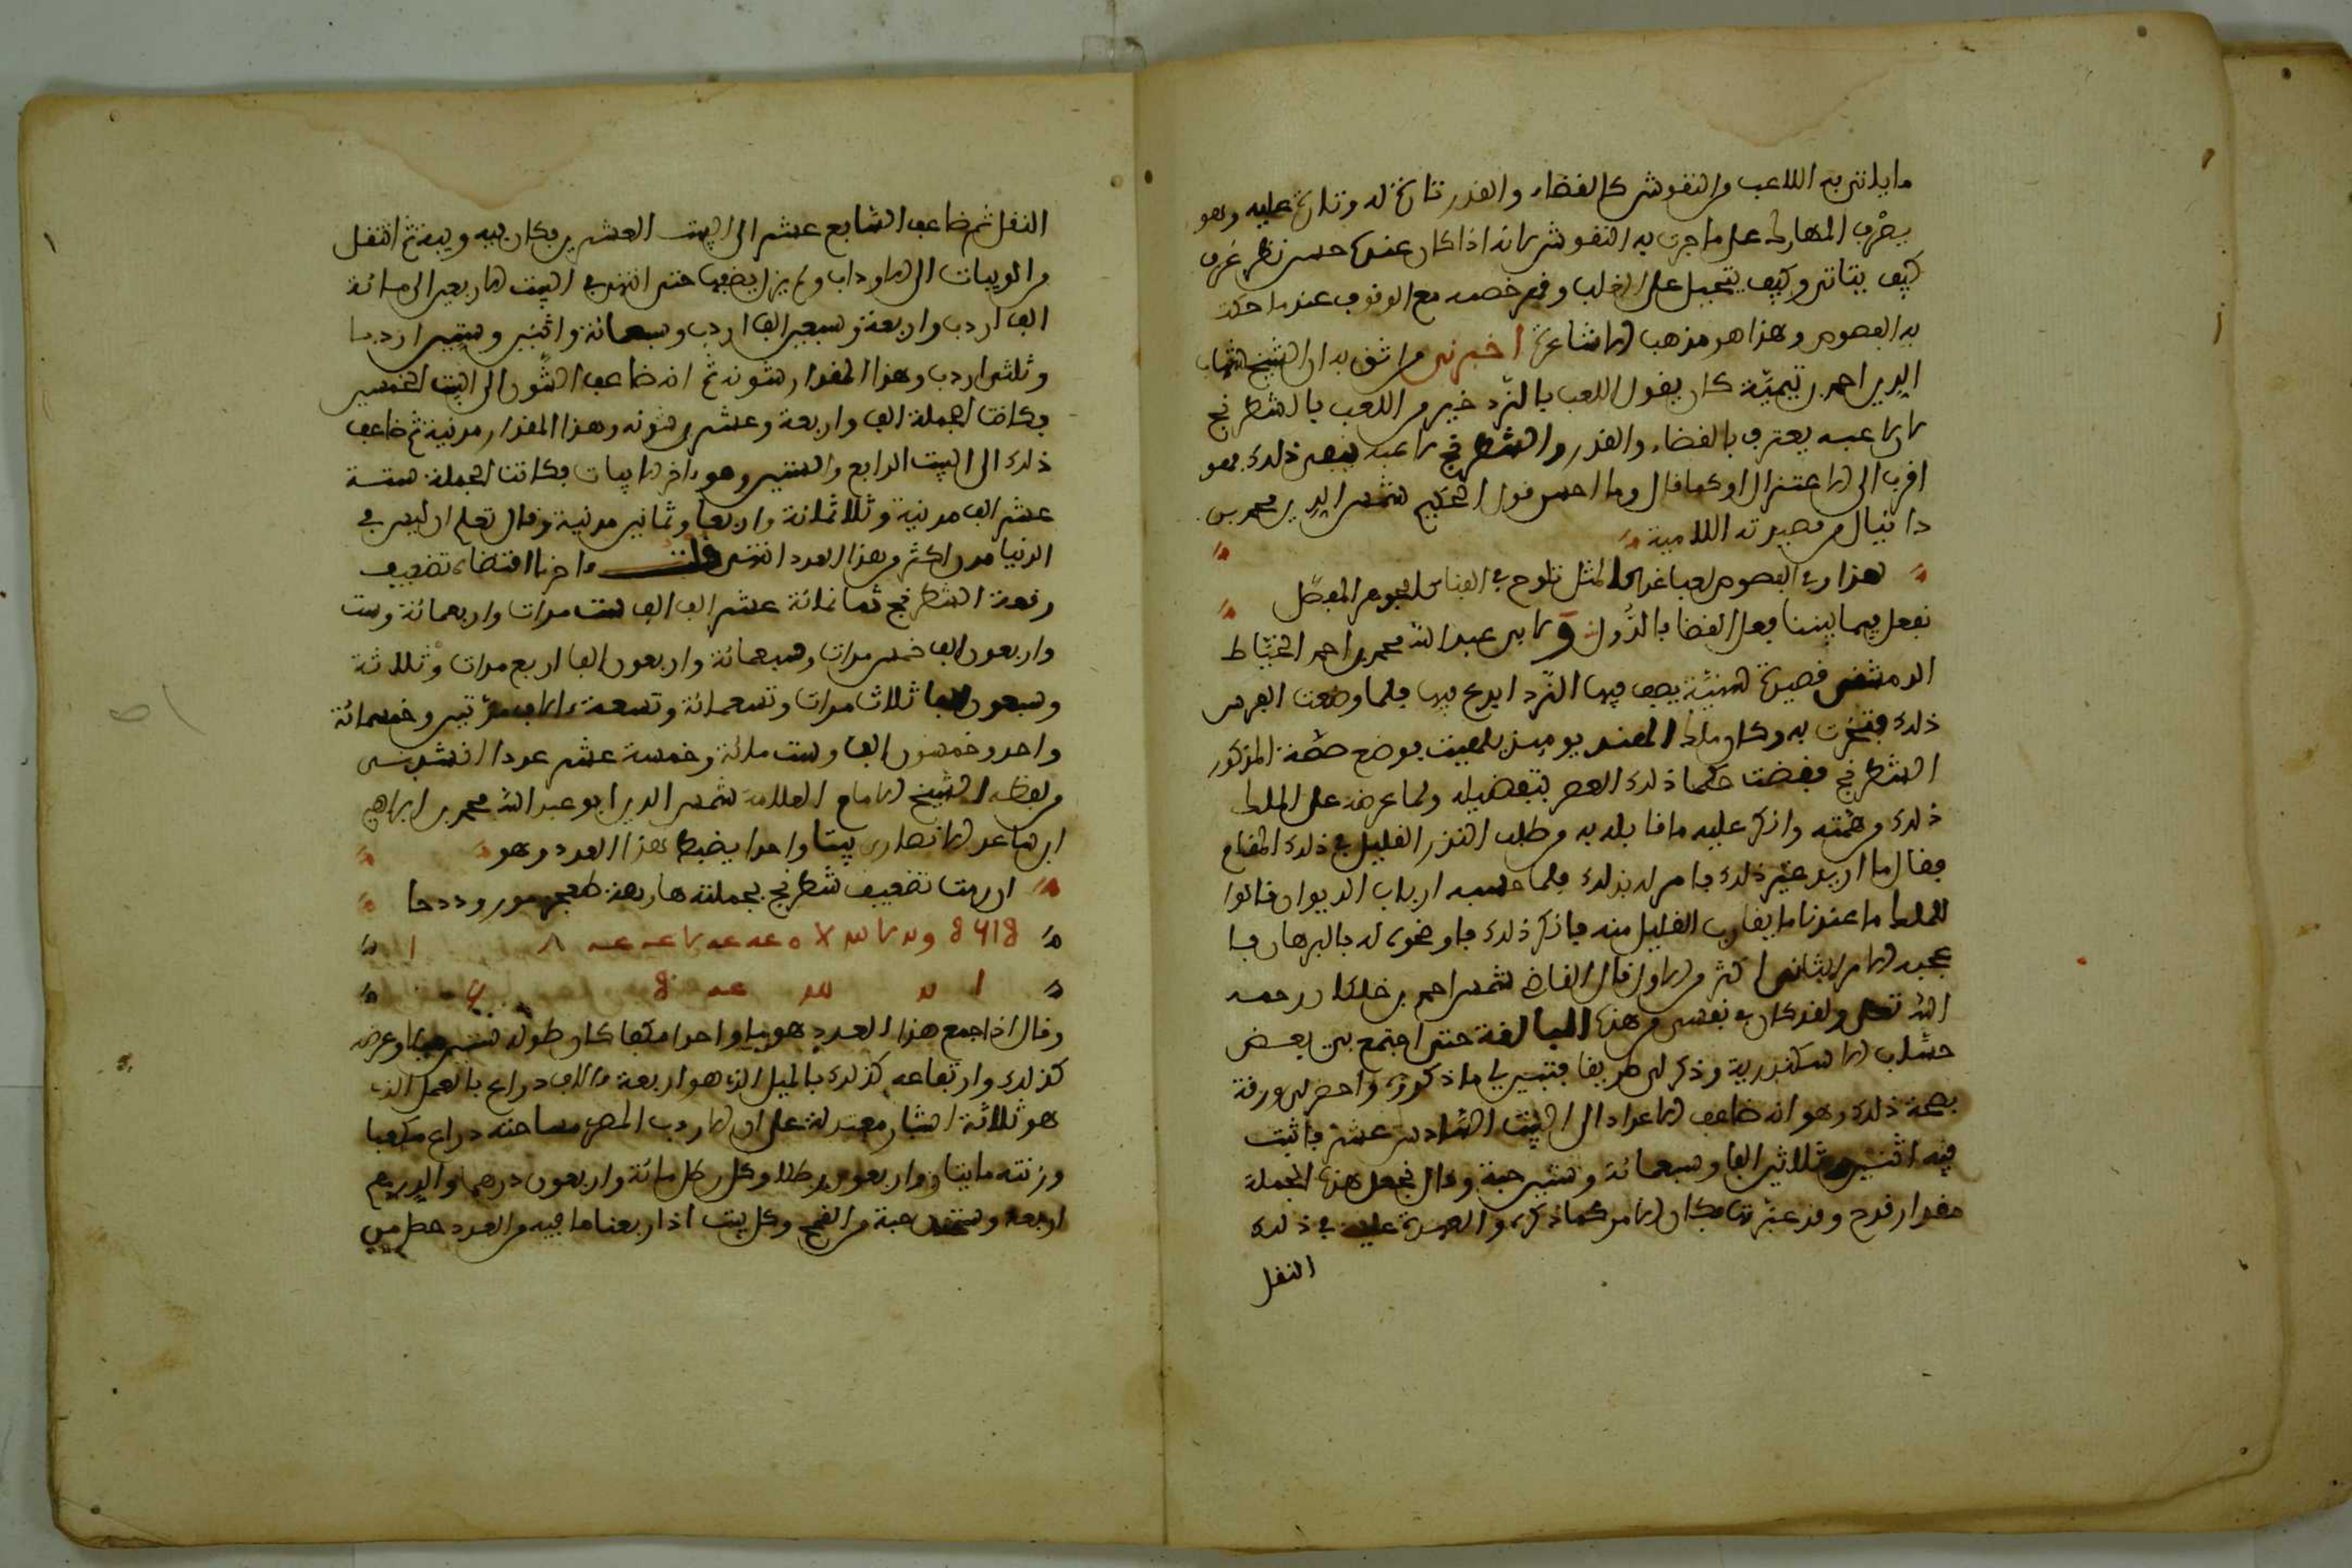 ما ياتي به اللاعب من النقوش كالقضاء والقدر تارة له وتارة عليه وهو
يصرف المهارك على ما جرت به النقوش لانه اذا كان عنده حسن نظر عرف
كيف يتاتى وكيف يتحيل على الغلب وقهر خصمه مع الوقوف عندما حكمت
به الفصوص وهذا هو مذهب الاشاعرة اخبرني من اثق به ان الشيخ شهاب
الدين احمد بن تيمية كان يقول اللعب بالنرد خير من اللعب بالشطرنج
لان لاعبه يعترف بالقضاء والقدر والشطرنج لاعبه ينفي ذلك فهو
اقرب الى الاعتزال او كما قال وما احسن قول الحكيم شمس الدين محمد بن
دانيال من قصيدته اللامية
هذا وفي الفصوص لعبا غدا كمثل تلوح في القنا بالجوهر المفصل
تفعل فيما بيننا فعل القضا بالدول ولابي عبد الله محمد بن احمد الخياط
الدمشقي قصيدة سينية يصف فيها النرد ابدع فيها فلما وضعت الفرس
ذلك افتخرت به وكان ملك الهند يومئذ بلهيت فوضع صصة المذكور
الشطرنج فقضت حكما ذلك العصر بتفضيله ولما عرضه على الملك
ذلك وهمته وانكر عليه ما قابله به من طلب النزر القليل في ذلك المقام
فقال ما اريد غير ذلك فامر له بذلك فلما حسبه ارباب الديوان قالوا
للملك ما عندنا ما يقارب القليل منه فانكر ذلك فاوضحوه له بالبرهان فا
عجبه الامر الثاني اكثر من الاول قال القاضي شمس احمد بن خلكان رحمه
الله تعلى ولقد كان في نفسي من هذه المبالغة حتى اجتمع بي بعض
حساب الاسكندرية وذكر لي طريقا فتبين لي ما ذكروه واحضر لي ورقة
بصحة ذلك وهو انه ضاعف الاعداد الى البيت السادس عشر فاثبت
فيه اثنين وثلاثين الفا وسبعمائة وستين حبة وقال نجعل هذه الجملة
مقدار قدح وقد عبرتها فكان الامر كما ذكره والعهدة عليه في ذلك
النقل
النقل ثم ضاعف السابع عشر الى البيت العشرين فكان فيه ويبة ثم انتقل
من الويبات الى الارداب ولم يزل يضعفها حتى انتهى في البيت الاربعين الى مائة
الف اردب واربعة وسبعين الف اردب وسبعمائة واثنين وستين اردبا
وثلثي اردب وهذا المقدار شونة ثم انه ضاعف الشون الى البيت الخمسين
فكانت الجملة الف واربعة وعشرين شونة وهذا المقدار مدنية ثم ضاعف
ذلك الى البيت الرابع والستين وهو ءاخر الابيات فكانت الجملة ستة
عشر الف مدنية وثلاثمائة واربعا وثمانين مدنية وقال تعلم ان ليس في
الدنيا مدن اكثر من هذا العدد انتهى قلت ءاخر ما اقتضاه تضعيف
رقعة الشطرنج ثمانمائة عشر الف الف ست مرات واربعمائة وست
واربعون الف خمس مرات وسبعمائة واربعون الفا اربع مرات وثلاثة
وسبعون الفا ثلاث مرات وتسعمائة وتسعة ءالاف مرتين وخمسمائة
واحد وخمسون الفا وست مائة وخمسة عشر عددا انشدني
من لفظه الشيخ الامام العلامة شمس الدين ابو عبد الله محمد بن ابراهيم
ابن ساعد الانصاري بيتا واحدا يضبط هذا العدد وهو
ان رمت تضعيف شطرنج بجملته هاربعة طعجز مور وددحا
وقال اذا جمع هذا العدد هوبا واحدا مكعبا كان طوله ستين ميلا وعرضه
كذلك وارتفاعه كذلك بالميل الذي هو اربعة ءالاف ذراع بالعمل الذي
هو ثلاثة اشبار معتدلة على ان الاردب المصري مساحته ذراع مكعبا
وزنته مايتان واربعون رطلا وكل رطل مائة واربعون درهما والدرهم
اربعة وستون حبة من القمح وكل بيت اذا ربعنا ما فيه من العدد حصل من